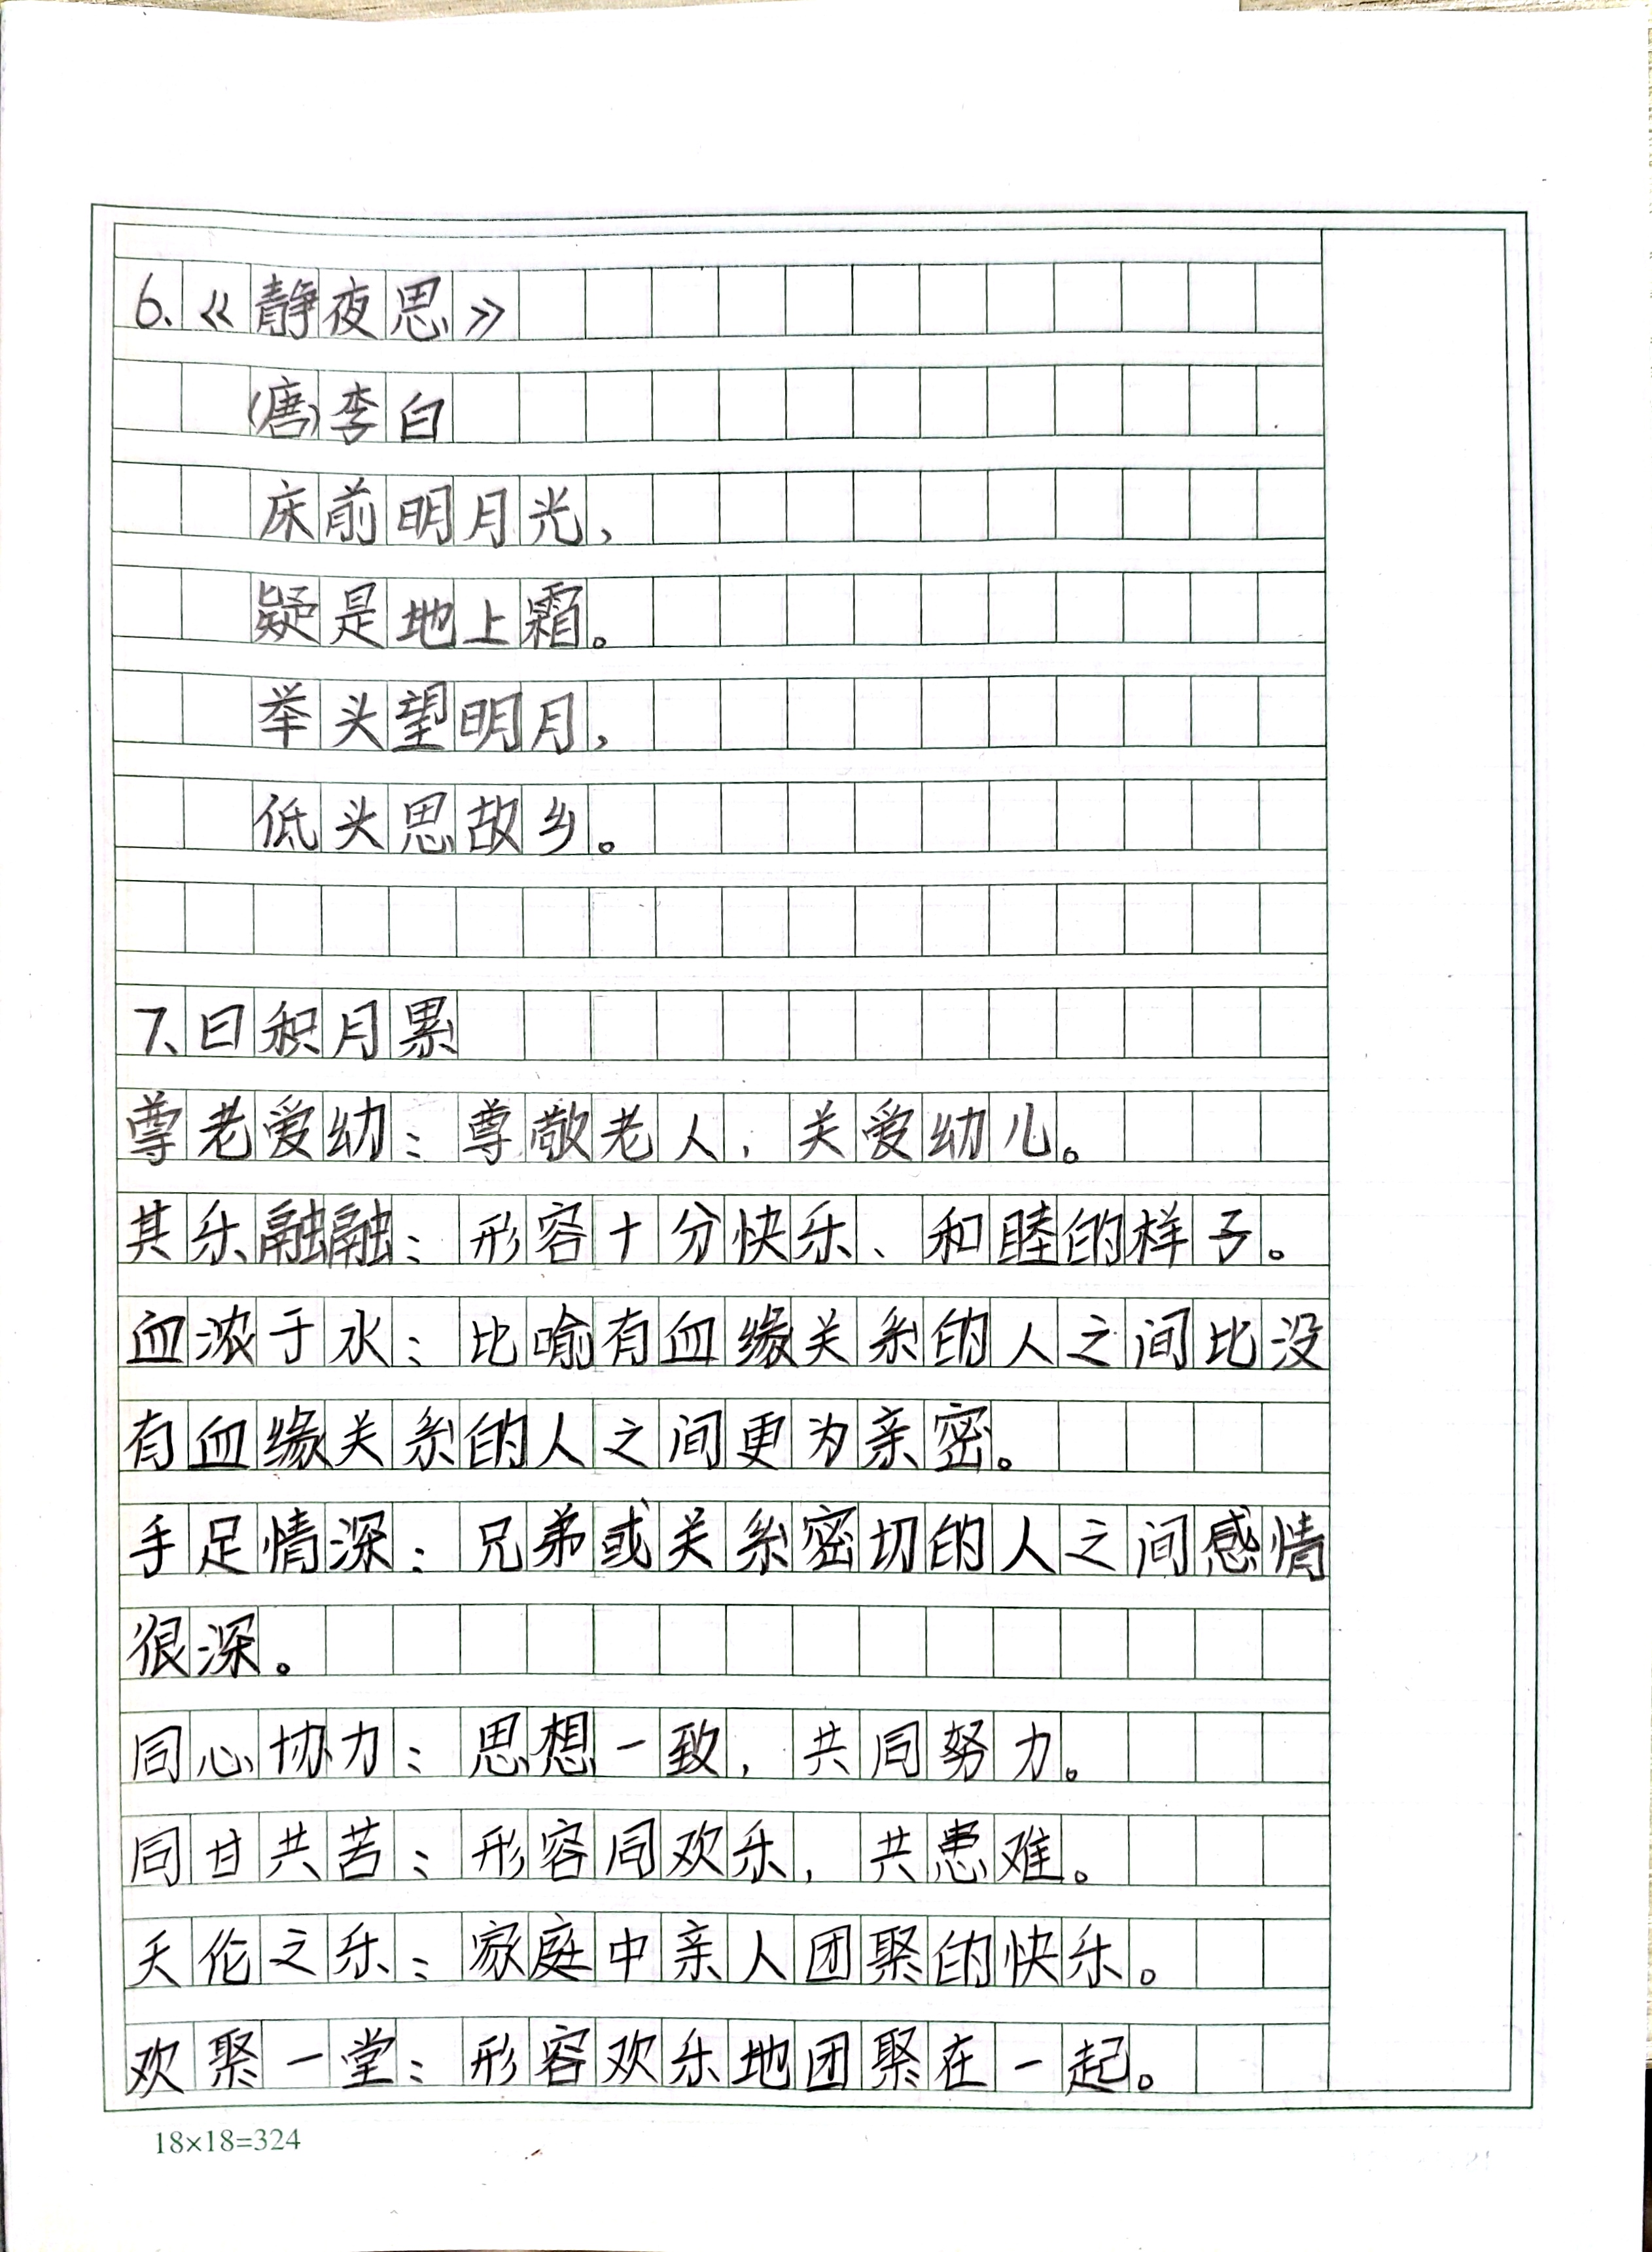 6、《静夜思》
(唐)李白
床前明月光，
疑是地上霜。
举头望明月，
低头思故乡。
7、日积月累
尊老爱幼：尊敬老人，关爱幼儿。
其乐融融：形容十分快乐、和睦的样子。
血浓于水：比喻有血缘关系的人之间比没
有血缘关系的人之间更为亲密。
手足情深：兄弟或关系密切的人之间感情
很深。
同心协力：思想一致，共同努力。
同甘共苦：形容同欢乐，共患难。
天伦之乐：家庭中亲人团聚的快乐。
欢聚一堂：形容欢乐地团聚在一起。
18×18=324